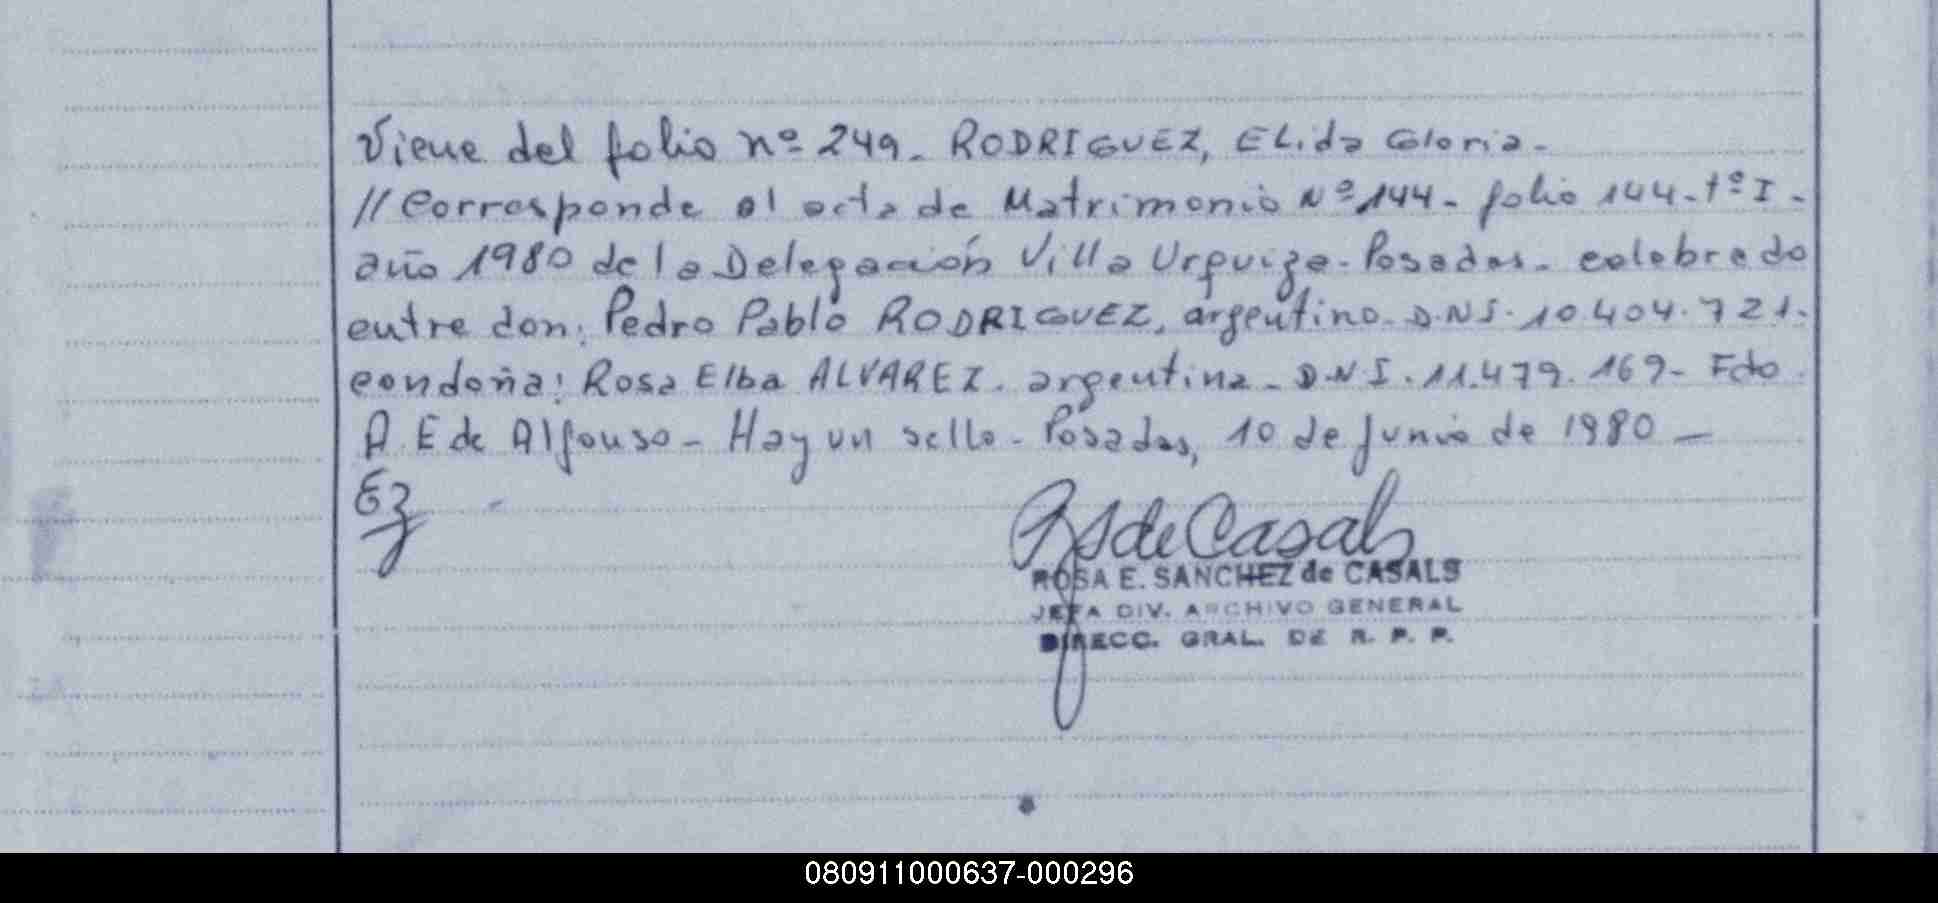 Viene del folio nº 249. RODRIGUEZ, ELida Gloria.
// Corresponde al acta de Matrimonio Nº 144. folio 144. tº I.
año 1980 de la Delegación Villa Urquiza. Posadas. celebrado
entre don: Pedro Pablo RODRIGUEZ, argentino. D.N.I. 10.404.721.
con doña: Rosa Elba ALVAREZ. argentina. D.N.I. 11.479.169. Fdo.
A. E de Alfonso - Hay un sello. Posadas, 10 de Junio de 1980 —
RS de Casals
ROSA E. SANCHEZ de CASALS
JEFA DIV. ARCHIVO GENERAL
DIRECC. GRAL. DE R. P. P.
080911000637-000296